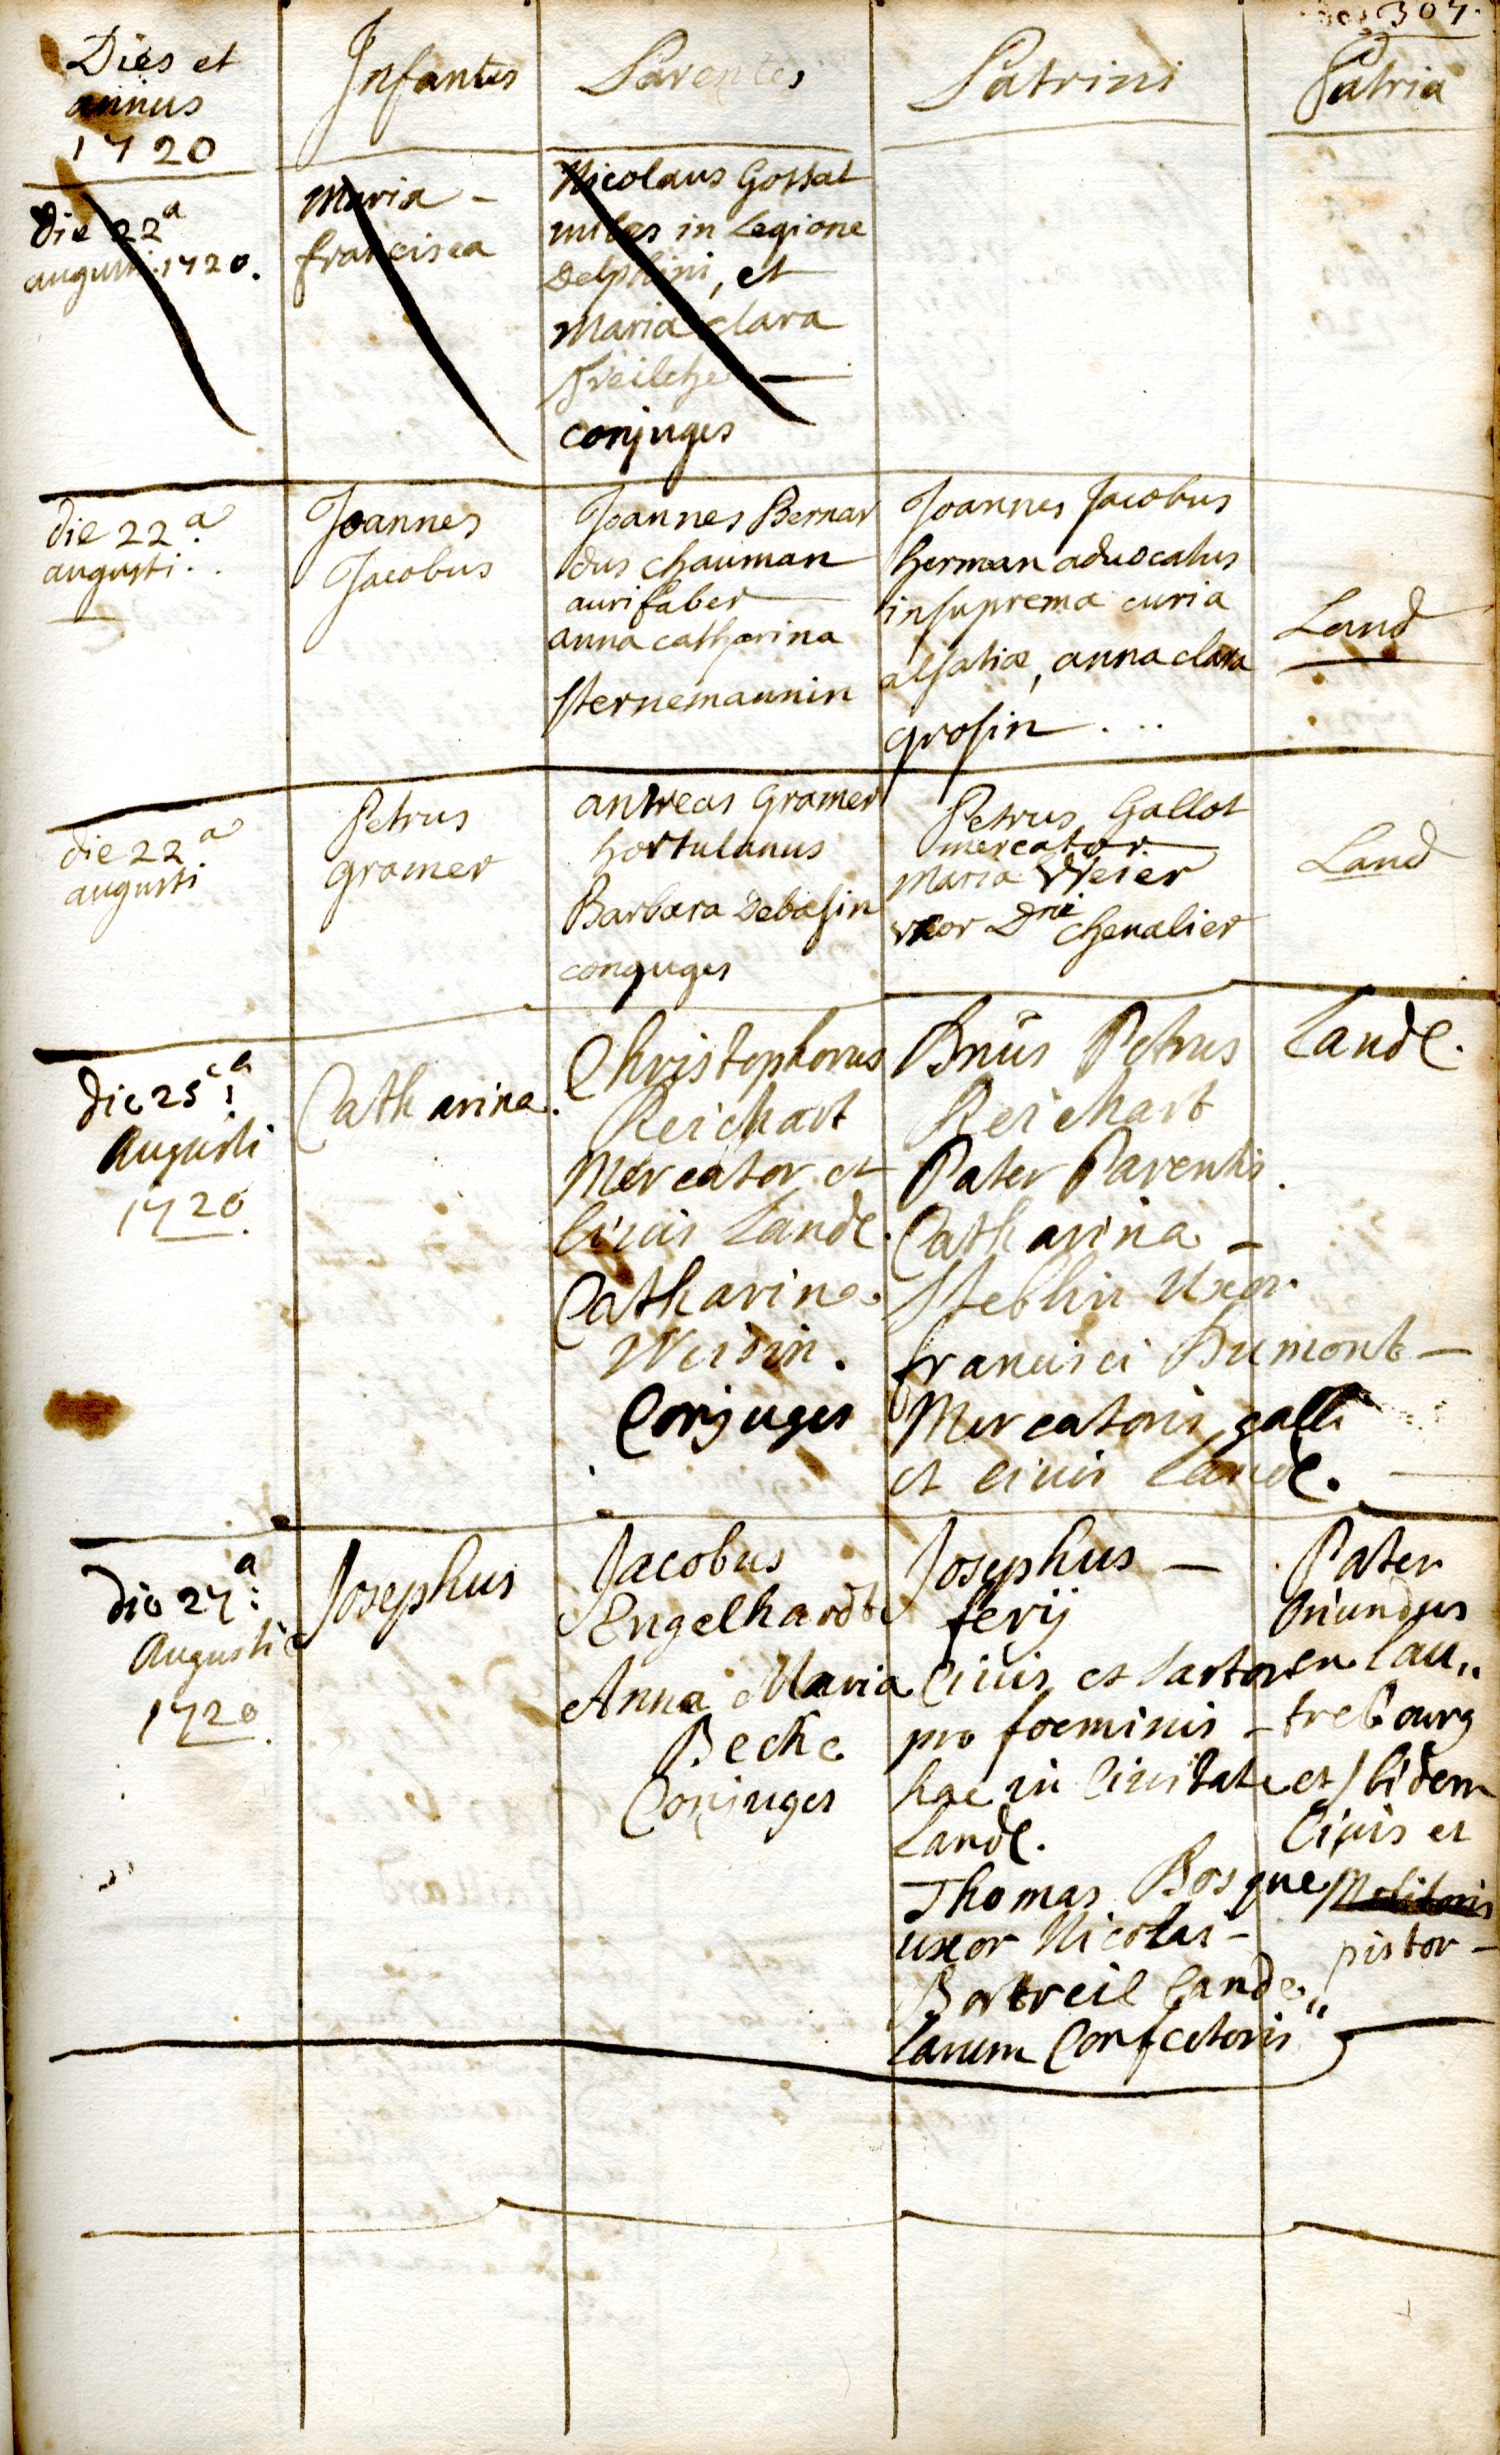 307.
Dies et
annus
1720
Infantes
Parentes
Patrini
Patria
die 22a
augusti 1720.
Maria -
francisca
Nicolaus Gossat
miles in Legione
Delphini, et
Maria clara
conjuges
die 22a
augusti.
Joannes
Jacobus
Joannes Bernar
dus chauman
aurifaber
anna catharina
sternemannin
Joannes Jacobus
herman aduocatus
in suprema curia
alsatiæ, anna clara
grosin
Land
die 22a
augusti
Petrus
gramer
antreas Gramer
hortulanus
Barbara Debasin
conguges
Petrus Gallot
mercator
Maria Weier
vxor Dni chenalier
Land
die 25ta
Augusti
1720.
Catharina.
Christophorus
Reichart
Mercator et
Ciuis Landl.
Catharina
Weidin.
Conjuges
Petrus
Reichart
Pater Parentis.
Catharina -
Steblin Uxor
francisci Dumont -
Mercatoris galli
et ciuis Landl.
Landl.
die 27a:
Augusti
1720.
Josephus
Jacobus
Engelhardt
Anna Maria
Becke
Conjuges
Josephus -
ferij
Ciuis et Sartor
pro foeminis -
hac in Ciuitate
Landl.
Thomas Bosque
uxor Nicolas -
Bortreil Land
Lanum Confectoris
Pater
Oriundus
en Lau„
trebourg
et ibidem
Ciuis et
Molitoris
pistor -